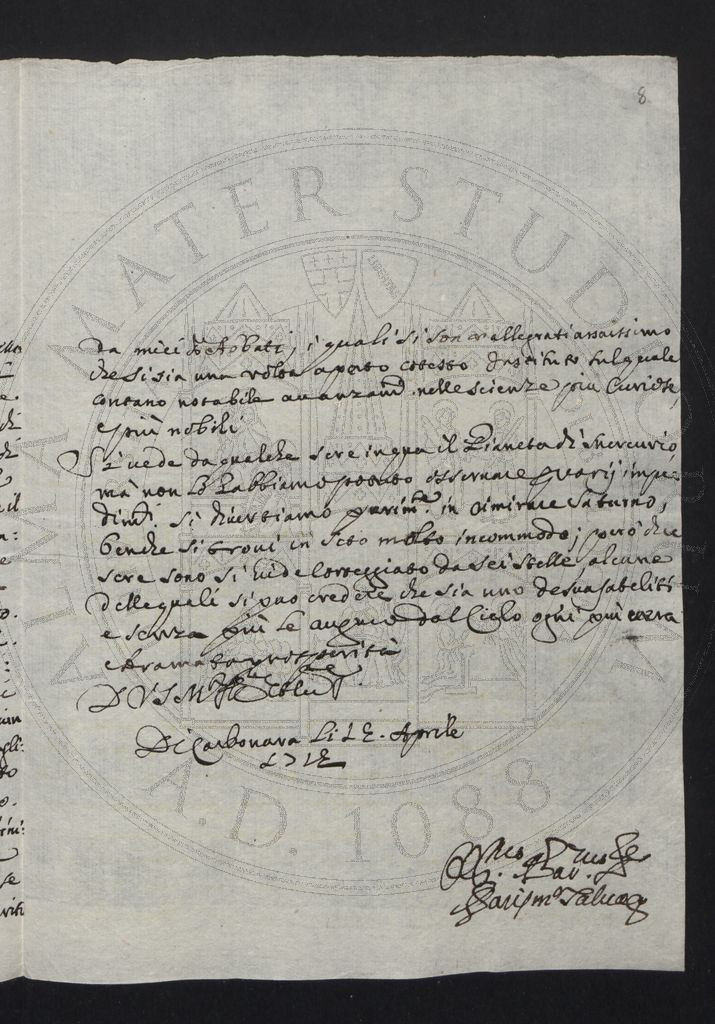 8
da miei SS.ri Abbati, i quali si son rallegrati assaissimo
che si sia una volta aperto cotesto Instituto sul quale
contano notabile avanzam.to nelle scienze piu curiose,
e più nobili
Si vede da qualche sere in qua il Pianeta di Mercurio
mà non lo habbiamo potuto osservare p varij impe-
dim.ti. Si divertiamo parim.te in rimirare Saturno,
benche si trovi in sito molto incommodo; però che
sere sono si vide corteggiato da sei stelle, alcune
delle quali si puo credere che sia uno de suoi satelliti
e senza più le auguro dal Cielo ogni più cara
e bramata prosperità
D V S M.to Ill.re
Di Carbonara li 12. Aprile
1712
ALMA MATER STUDIORUM
LIBERTAS
A.D. 1088